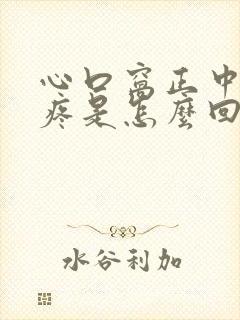 心口窩正中
疼是怎麼回
水谷利加